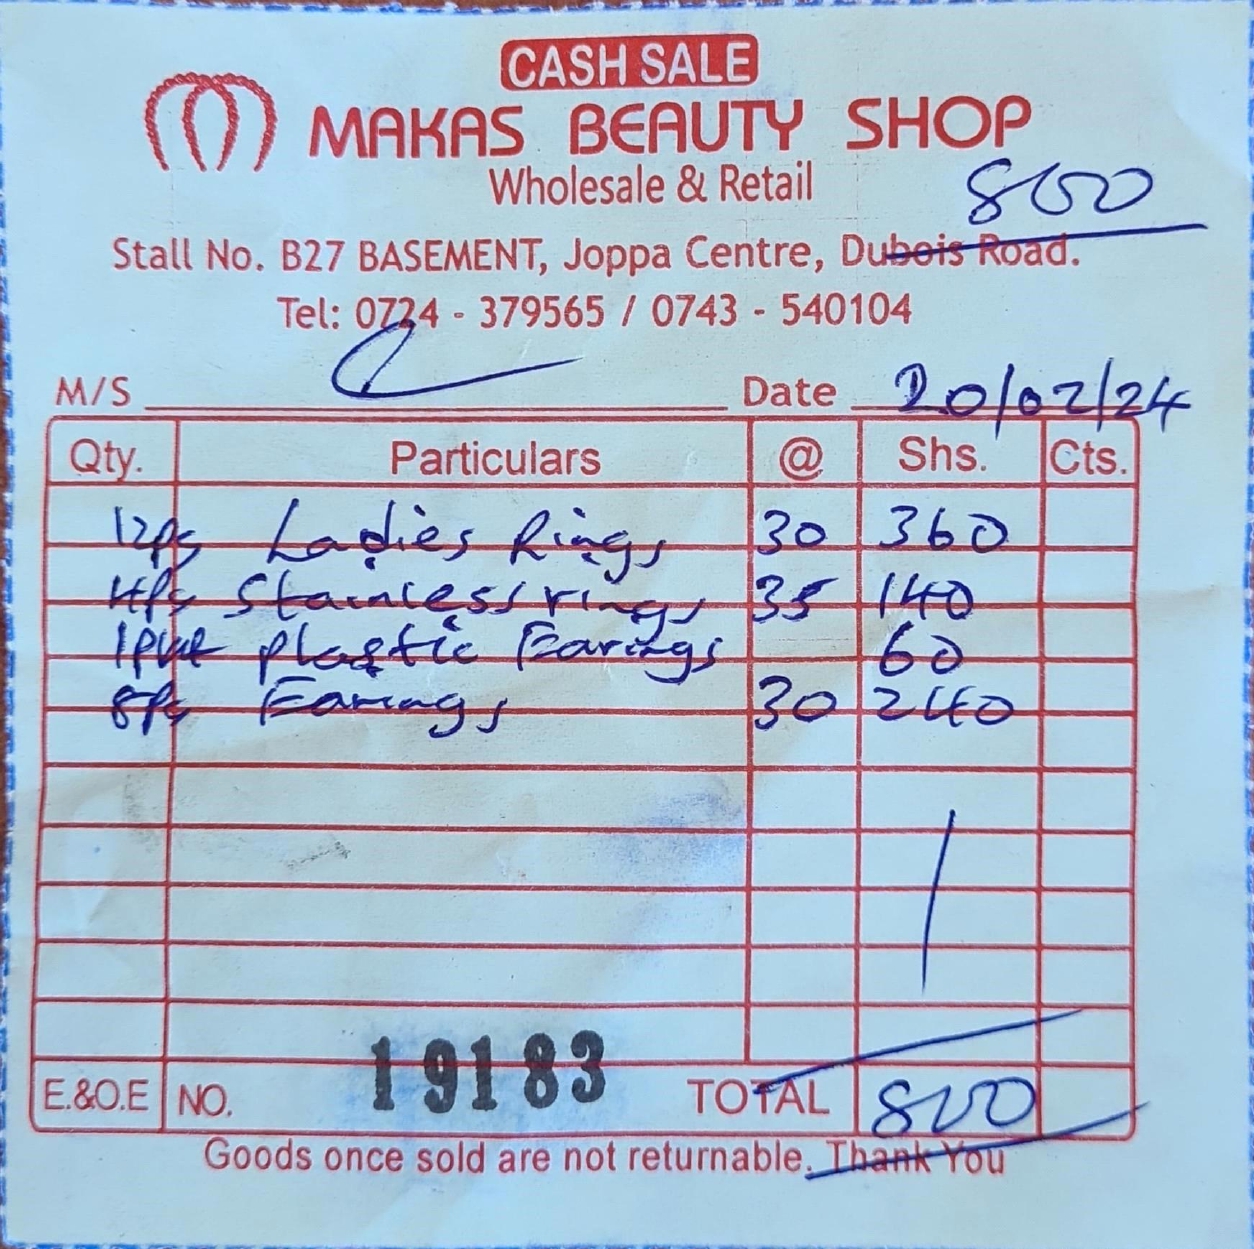 CASH SALE
MAKAS BEAUTY SHOP
Wholesale & Retail
800
Stall No. B27 BASEMENT, Joppa Centre, Dubois Road.
Tel: 0724 - 379565 / 0743 - 540104
M/S Date 20/02/24
Qty. Particulars @ Shs. Cts.
12pc Ladies Rings 30 360
4pc Stainless rings 35 140
1pkt plastic Earings 60
8pc Earings 30 240
E.&O.E NO. 19183 TOTAL 800
Goods once sold are not returnable. Thank You